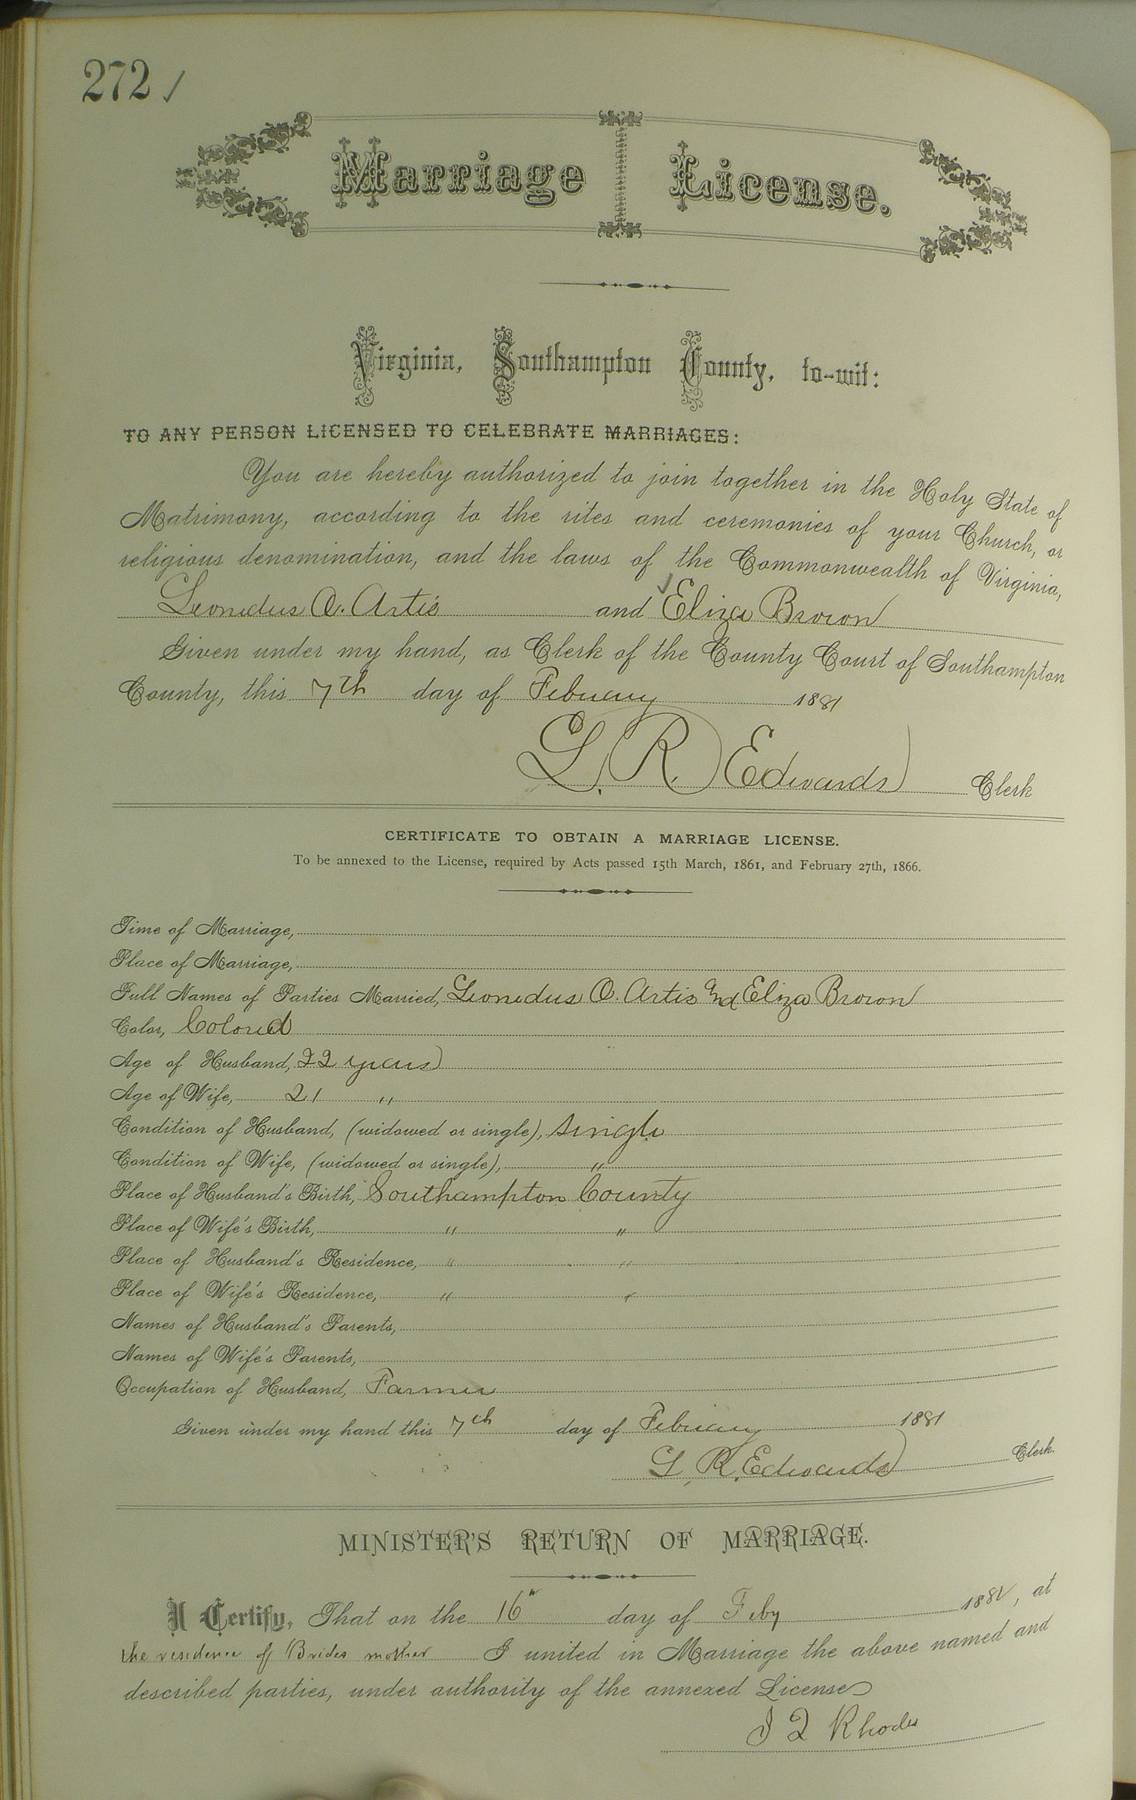 272
Marriage License.
Virginia, Southampton County, to-wit:
TO ANY PERSON LICENSED TO CELEBRATE MARRIAGES:
You are hereby authorized to join together in the Holy State of
Matrimony, according to the rites and ceremonies of your Church, or
religious denomination, and the laws of the Commonwealth of Virginia,
Leonidus O. Artis and Eliza Brown
Given under my hand, as Clerk of the County Court of Southampton
County, this 7th day of February 1881
L. R. Edwards Clerk
CERTIFICATE TO OBTAIN A MARRIAGE LICENSE.
To be annexed to the License, required by Acts passed 15th March, 1861, and February 27th, 1866.
Time of Marriage,
Place of Marriage,
Full Names of Parties Married, Leonidus O. Artis and Eliza Brown
Color, Colored
Age of Husband, 22 years
Age of Wife, 21 "
Condition of Husband, (widowed or single), single
Condition of Wife, (widowed or single), "
Place of Husband's Birth, Southampton County
Place of Wife's Birth, " "
Place of Husband's Residence, " "
Place of Wife's Residence, " "
Names of Husband's Parents,
Names of Wife's Parents,
Occupation of Husband, Farmer
Given under my hand this 7th day of February 1881
L. R. Edwards Clerk.
MINISTER'S RETURN OF MARRIAGE.
I Certify, That on the 16" day of Feby 1881, at
the residence of Brides mother I united in Marriage the above named and
described parties, under authority of the annexed License
Rhodes